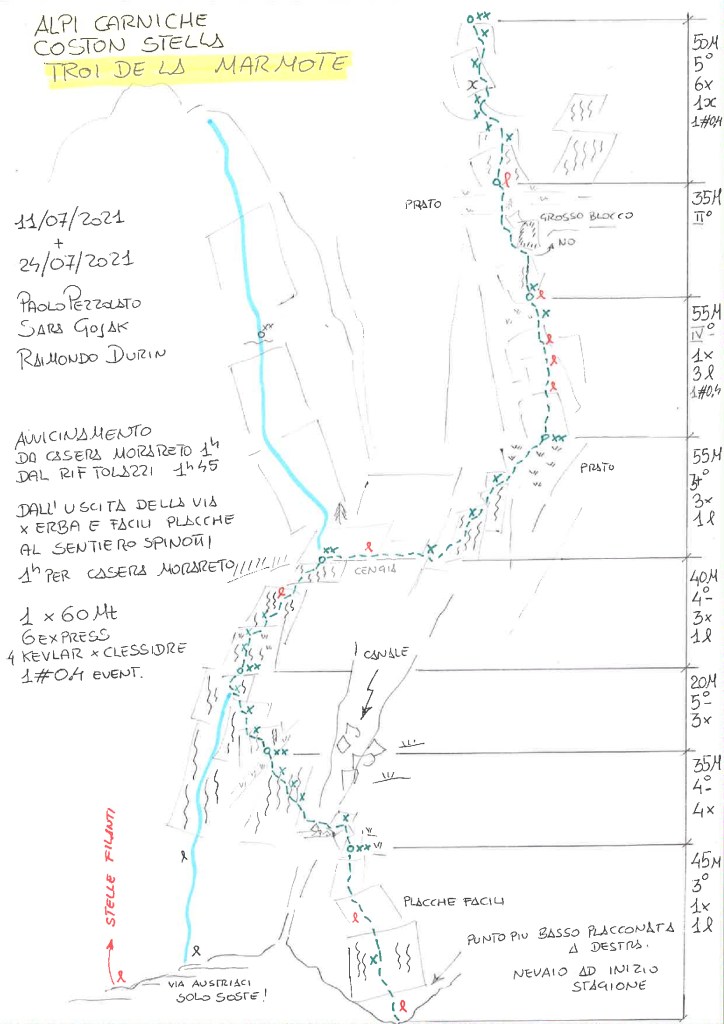 ALPI CARNICHE
COSTON STELLA
TROI DE LA MARMOTE
11/07/2021
+
24/07/2021
PAOLO PEZZOLATO
SARA GOJAK
RAIMONDO DURIN
AVVICINAMENTO
DA CASERA MORARETO 1h
DAL RIF TOLAZZI 1h45
DALL'USCITA DELLA VIA
x ERBA E FACILI PLACCHE
AL SENTIERO SPINOTTI
1h PER CASERA MORARETO
1 x 60 Mt
6 EXPRESS
4 KEVLAR x CLESSIDRE
1#0.4 EVENT.
STELLE FILANTI
VIA AUSTRIACI
SOLO SOSTE!
PRATO
GROSSO BLOCCO
NO
PRATO
CENGIA
CANALE
PLACCHE FACILI
PUNTO PIU BASSO PLACCONATA
A DESTRA.
NEVAIO AD INIZIO
STAGIONE
50M
5°
6x
1x
1#0,4
35M
II°
55M
IV°-
1x
3l
1#0,4
55M
3+°
3x
1l
40M
4°-
3x
1l
20M
5°-
3x
35M
4°-
4x
45M
3°
1x
1l